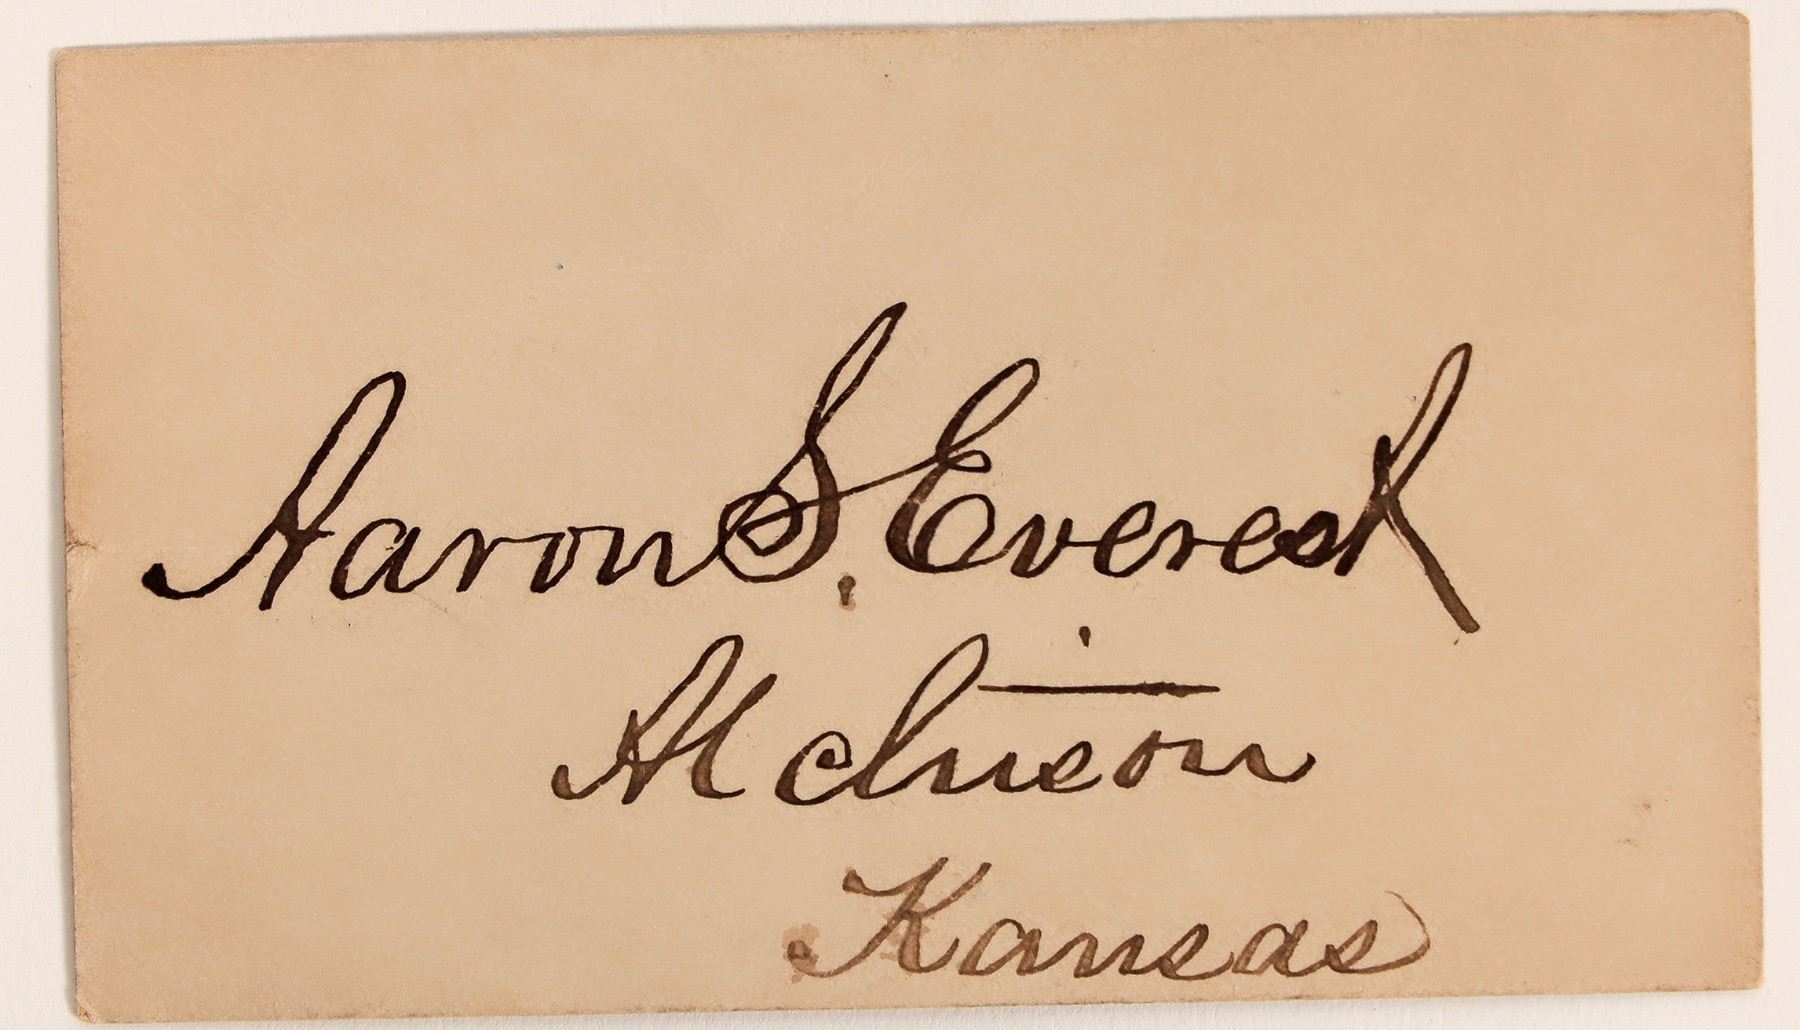 Aaron S. Everest
Atchison
Kansas